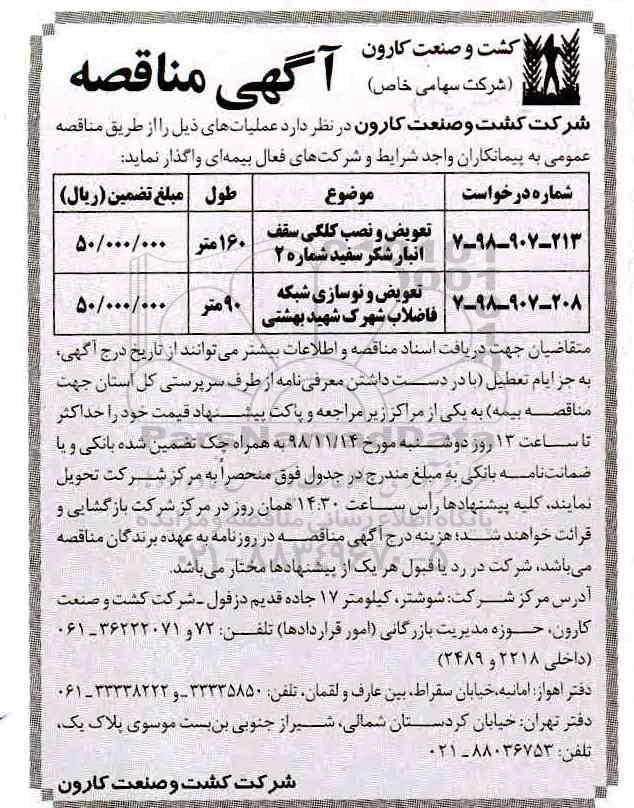 کشت و صنعت کارون
(شرکت سهامی خاص)
آگهی مناقصه
شرکت کشت و صنعت کارون در نظر دارد عملیات‌های ذیل را از طریق مناقصه
عمومی به پیمانکاران واجد شرایط و شرکت‌های فعال بیمه‌ای واگذار نماید:
شماره درخواست موضوع طول مبلغ تضمین (ریال)
۷-۹۸-۹۰۷-۲۱۳ تعویض و نصب کلگی سقف انبار شکر سفید شماره ۲ ۱۶۰ متر ۵۰/۰۰۰/۰۰۰
۷-۹۸-۹۰۷-۲۰۸ تعویض و نوسازی شبکه فاضلاب شهرک شهید بهشتی ۹۰ متر ۵۰/۰۰۰/۰۰۰
متقاضیان جهت دریافت اسناد مناقصه و اطلاعات بیشتر می‌توانند از تاریخ درج آگهی،
به جز ایام تعطیل (با در دست داشتن معرفی‌نامه از طرف سرپرستی کل استان جهت
مناقصه بیمه) به یکی از مراکز زیر مراجعه و پاکت پیشنهاد قیمت خود را حداکثر
تا ساعت ۱۳ روز دوشنبه مورخ ۹۸/۱۱/۱۴ به همراه چک تضمین شده بانکی و یا
ضمانت‌نامه بانکی به مبلغ مندرج در جدول فوق منحصراً به مرکز شرکت تحویل
نمایند، کلیه پیشنهادها رأس ساعت ۱۴:۳۰ همان روز در مرکز شرکت بازگشایی و
قرائت خواهند شد؛ هزینه درج آگهی مناقصه در روزنامه به عهده برندگان مناقصه
می‌باشد، شرکت در رد یا قبول هر یک از پیشنهادها مختار می‌باشد.
آدرس مرکز شرکت: شوشتر، کیلومتر ۱۷ جاده قدیم دزفول - شرکت کشت و صنعت
کارون، حوزه مدیریت بازرگانی (امور قراردادها) تلفن: ۷۲ و ۳۶۲۲۲۰۷۱-۰۶۱
(داخلی ۲۲۱۸ و ۲۴۸۹)
دفتر اهواز: امانیه، خیابان سقراط، بین عارف و لقمان، تلفن: ۳۳۳۳۵۸۵۰- و ۳۳۳۳۸۲۲۲-۰۶۱
دفتر تهران: خیابان کردستان شمالی، شیراز جنوبی بن‌بست موسوی پلاک یک،
تلفن: ۸۸۰۳۶۷۵۳-۰۲۱
شرکت کشت و صنعت کارون
ParsNamadData
پایگاه اطلاع رسانی مناقصه و مزایده
۰۲۱-۸۸۳۴۹۶۷۰-۵